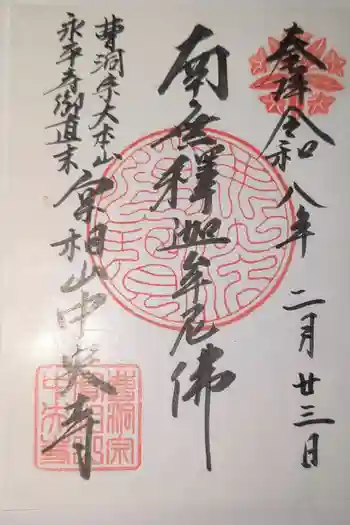 奉拝 令和八年 二月廿三日
南無釋迦牟尼佛
曹洞宗大本山
永平寺御直末
宰相山中央寺
曹洞宗